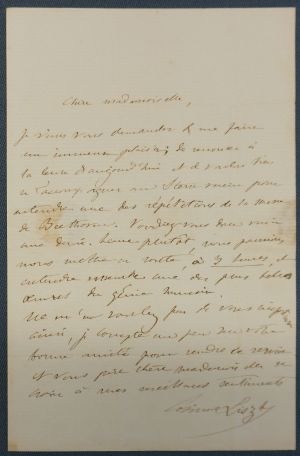 Chère mademoiselle,
Je viens vous demander de me faire
un immense plaisir, de renoncer à
la leçon d'aujourd'hui et de
m'accompagner au pour
entendre une des répétitions de la messe
de Beethoven. Voudriez vous donc venir
une demi heure plutôt, nous pourrions
nous mettre en route, à 3 heures, et
entendre ensemble une des plus belles
œuvres du génie humain.
Ne m'en voulez pas de vous
ainsi, je compte un peu sur votre
bonne amitié pour rendre ce service
et vous prie chère mademoiselle de
croire à mes meilleurs sentiments
Cosima Liszt